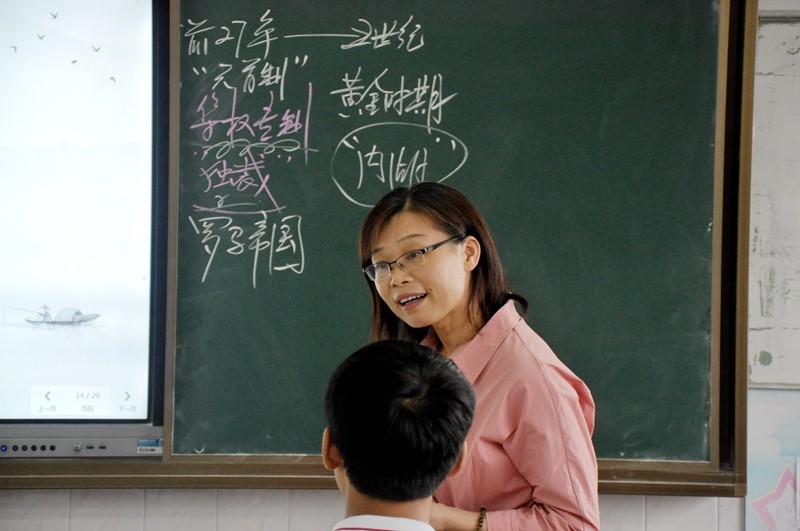 前27年——5世纪
"元首制"
集权专制
独裁
罗马帝国
黄金时期
"内附"
14 / 20
上一页 页码 下一页